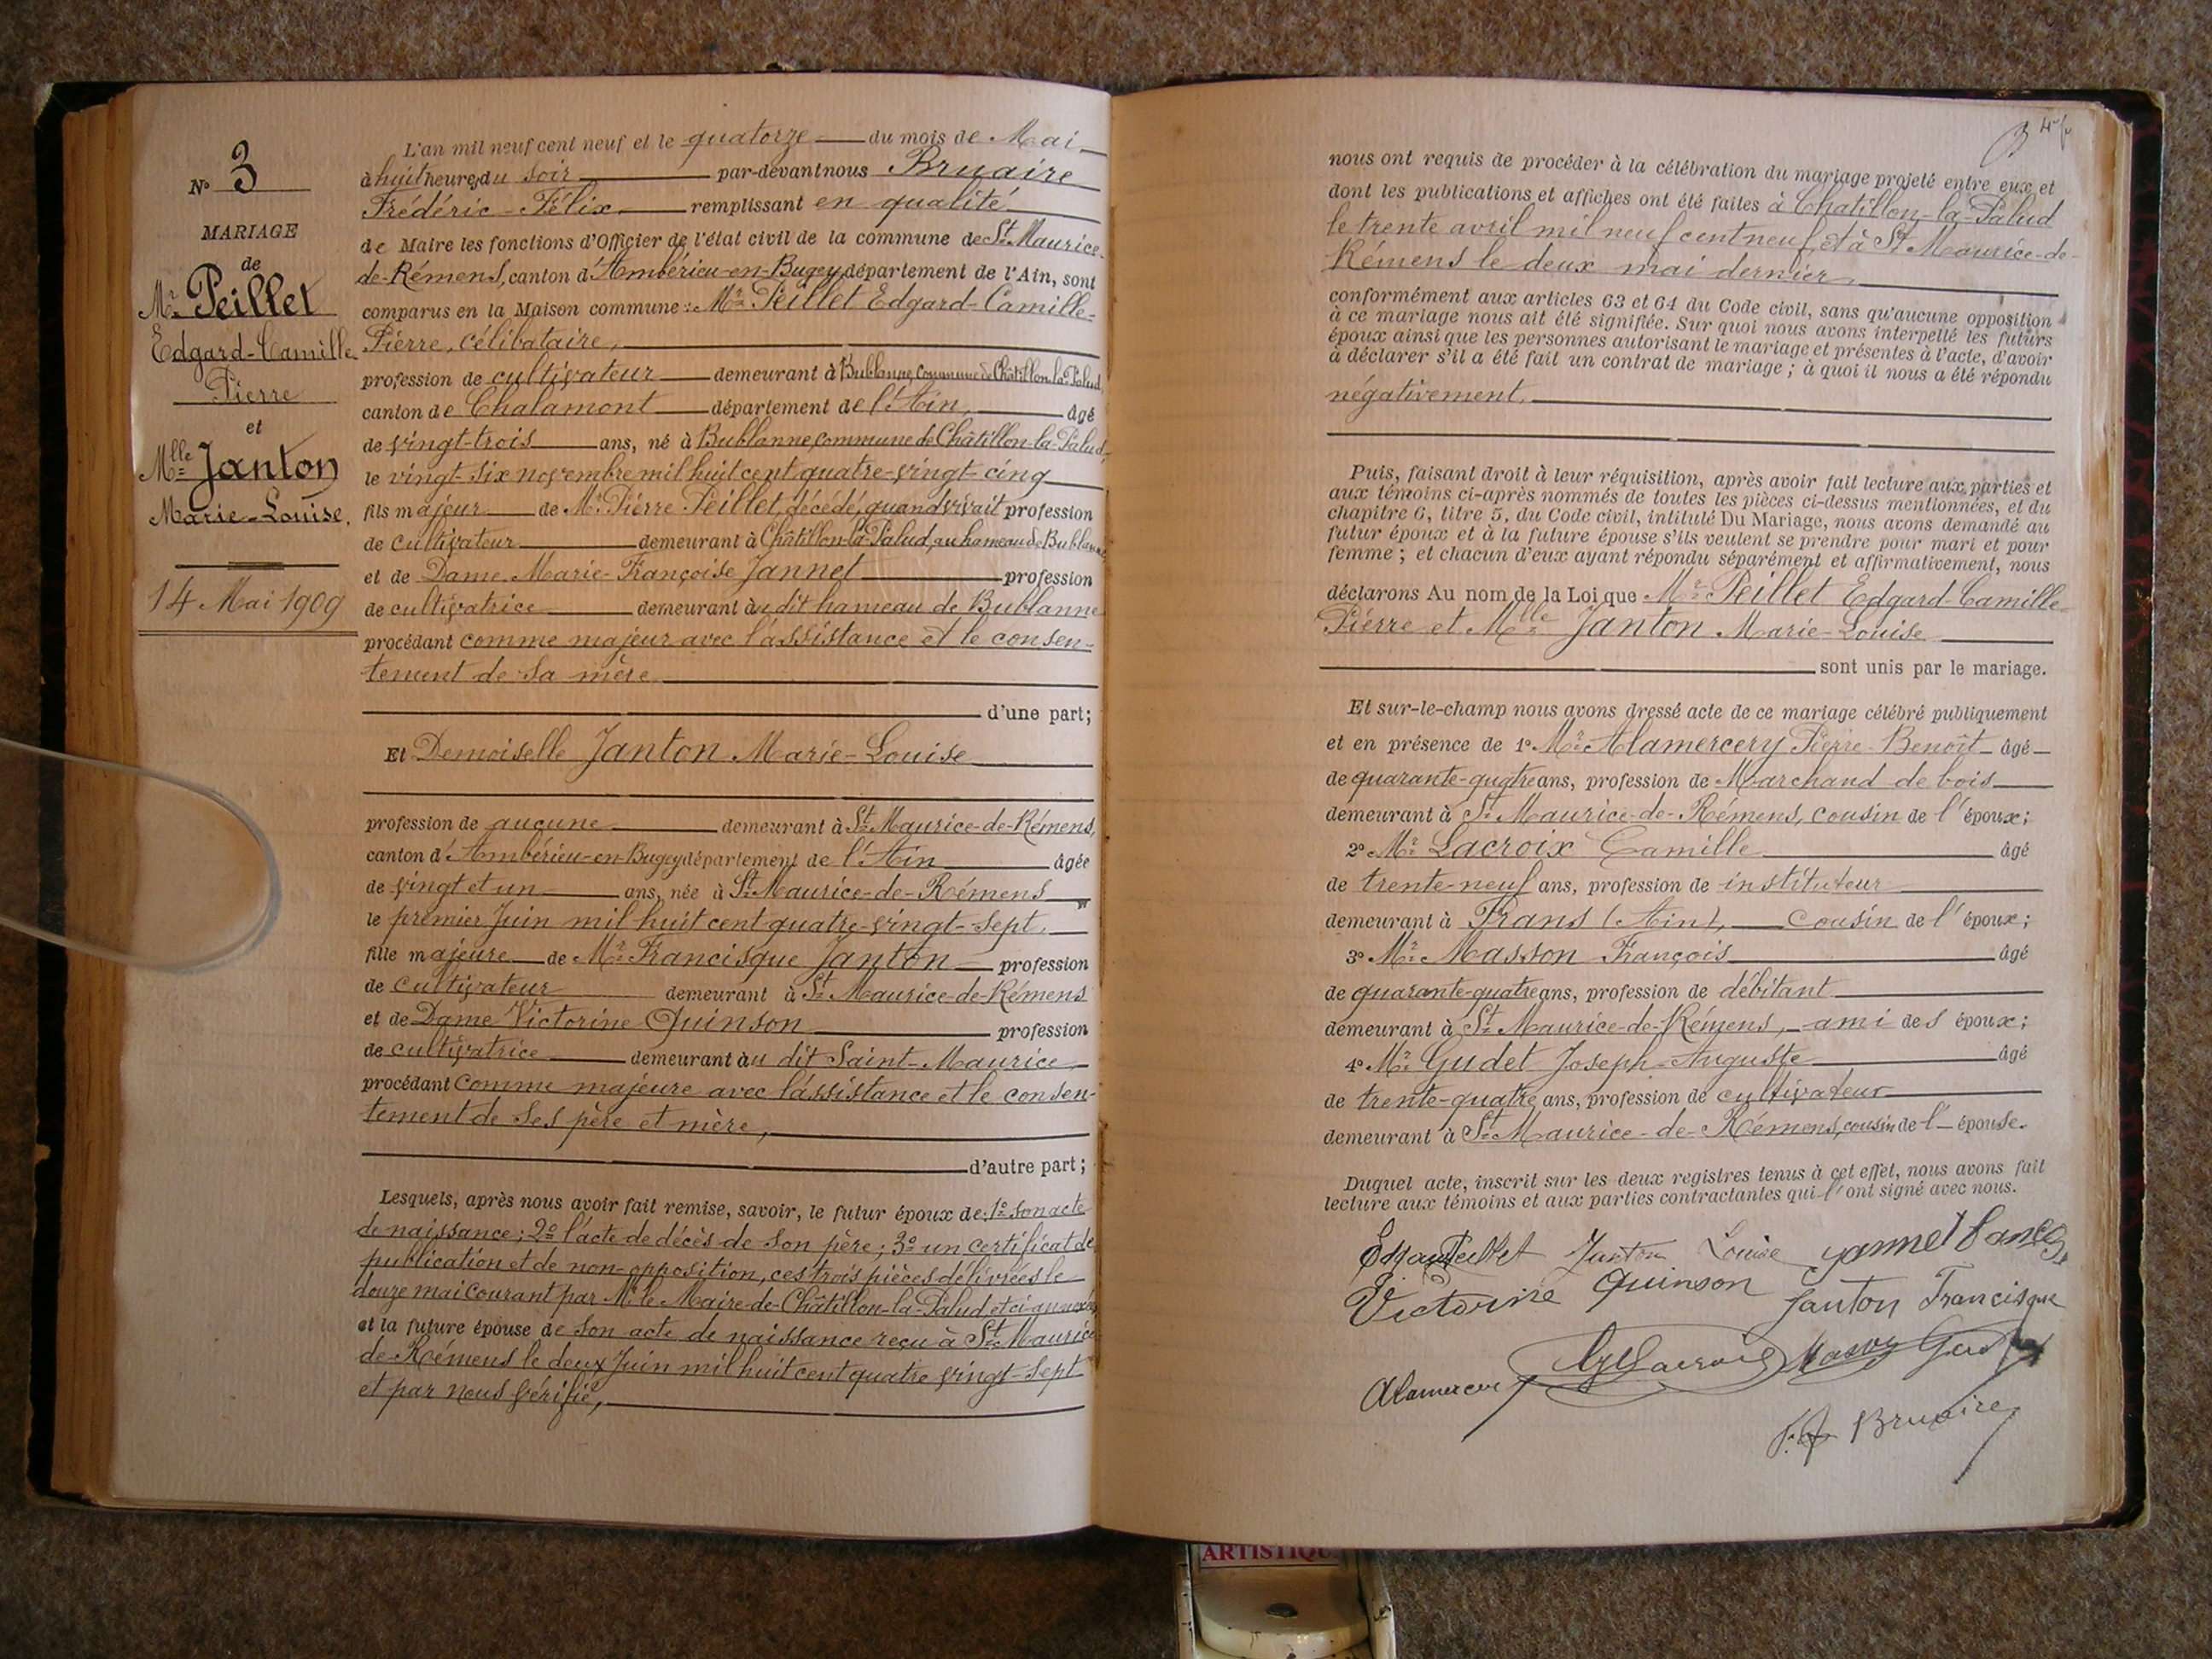 N° 3
MARIAGE
de
Mr. Peillet
Edgard-Camille
Pierre
et
Mlle Janton
Marie-Louise.
14 Mai 1909
L'an mil neuf cent neuf et le quatorze du mois de Mai
à huit heures du soir par-devant nous Bruaire
Frédéric-Félix remplissant en qualité
de Maire les fonctions d'Officier de l'état civil de la commune de St Maurice-
de-Rémens, canton d'Ambérieu-en-Bugey, département de l'Ain, sont
comparus en la Maison commune : Mr. Peillet Edgard-Camille-
Pierre, célibataire,
profession de cultivateur demeurant à Bublanne, Commune de Châtillon-la-Palud,
canton de Chalamont département de l'Ain, âgé
de vingt-trois ans, né à Bublanne, commune de Châtillon-la-Palud,
le vingt-six novembre mil huit cent quatre-vingt-cinq
fils majeur de Mr. Pierre Peillet, décédé, quand vivait profession
de cultivateur demeurant à Châtillon-la-Palud, au hameau de Bublanne
et de Dame Marie-Françoise Jannet profession
de cultivatrice demeurant au dit hameau de Bublanne
procédant comme majeur avec l'assistance et le consen-
tement de sa mère
d'une part;
Et Demoiselle Janton Marie-Louise
profession de aucune demeurant à St Maurice-de-Rémens,
canton d'Ambérieu-en-Bugey département de l'Ain âgée
de vingt et un ans, née à St Maurice-de-Rémens
le premier Juin mil huit cent quatre-vingt-sept.
fille majeure de Mr. Francisque Janton profession
de cultivateur demeurant à St Maurice-de-Rémens
et de Dame Victorine Quinson profession
de cultivatrice demeurant au dit Saint-Maurice
procédant comme majeure avec l'assistance et le consen-
tement de ses père et mère,
d'autre part;
Lesquels, après nous avoir fait remise, savoir, le futur époux de: 1° son acte
de naissance; 2° l'acte de décès de son père; 3° un certificat de
publication et de non-opposition, ces trois pièces délivrées le
douze mai courant par Mr le Maire de Châtillon-la-Palud, et ci-annexées
et la future épouse de son acte de naissance reçu à St Maurice
de-Rémens le deux Juin mil huit cent quatre vingt-sept
et par nous vérifié,
nous ont requis de procéder à la célébration du mariage projeté entre eux et
dont les publications et affiches ont été faites à Chatillon-la-Palud
le trente avril mil neuf cent neuf, et à St Maurice-de-
Rémens le deux mai dernier
conformément aux articles 63 et 64 du Code civil, sans qu'aucune opposition
à ce mariage nous ait été signifiée. Sur quoi nous avons interpellé les futurs
époux ainsi que les personnes autorisant le mariage et présentes à l'acte, d'avoir
à déclarer s'il a été fait un contrat de mariage ; à quoi il nous a été répondu
négativement.
Puis, faisant droit à leur réquisition, après avoir fait lecture aux parties et
aux témoins ci-après nommés de toutes les pièces ci-dessus mentionnées, et du
chapitre 6, titre 5, du Code civil, intitulé Du Mariage, nous avons demandé au
futur époux et à la future épouse s'ils veulent se prendre pour mari et pour
femme ; et chacun d'eux ayant répondu séparément et affirmativement, nous
déclarons Au nom de la Loi que Mr. Peillet Edgard-Camille
Pierre et Mlle Janton Marie-Louise
sont unis par le mariage.
Et sur-le-champ nous avons dressé acte de ce mariage célébré publiquement
et en présence de 1° Mr. Alamercery Pierre-Benoît âgé
de quarante-quatre ans, profession de Marchand de bois
demeurant à St Maurice-de-Rémens, cousin de l'époux;
2° Mr. Lacroix Camille âgé
de trente-neuf ans, profession de instituteur
demeurant à Frans (Ain), cousin de l'époux;
3° Mr. Masson François âgé
de quarante-quatre ans, profession de débitant
demeurant à St Maurice-de-Rémens, ami des époux;
4° Mr. Gudet Joseph-Auguste âgé
de trente-quatre ans, profession de cultivateur
demeurant à St Maurice-de-Rémens, cousin de l'épouse.
Duquel acte, inscrit sur les deux registres tenus à cet effet, nous avons fait
lecture aux témoins et aux parties contractantes qui l'ont signé avec nous.
Peillet Janton Louise
Victorine Quinson Janton Francisque
Alamercery Lacroix
Bruaire
ARTISTIQU